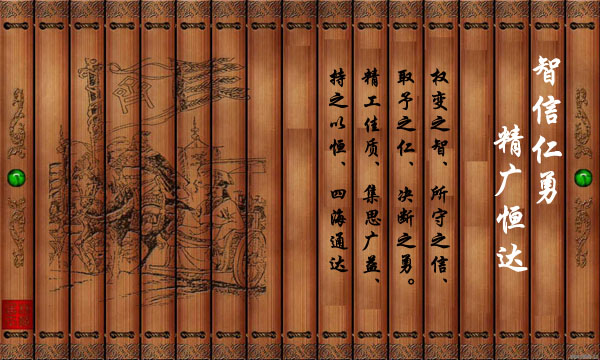 智信仁勇
精广恒达
权变之智、所守之信、
取予之仁、决断之勇。
精工佳质、集思广益、
持之以恒、四海通达